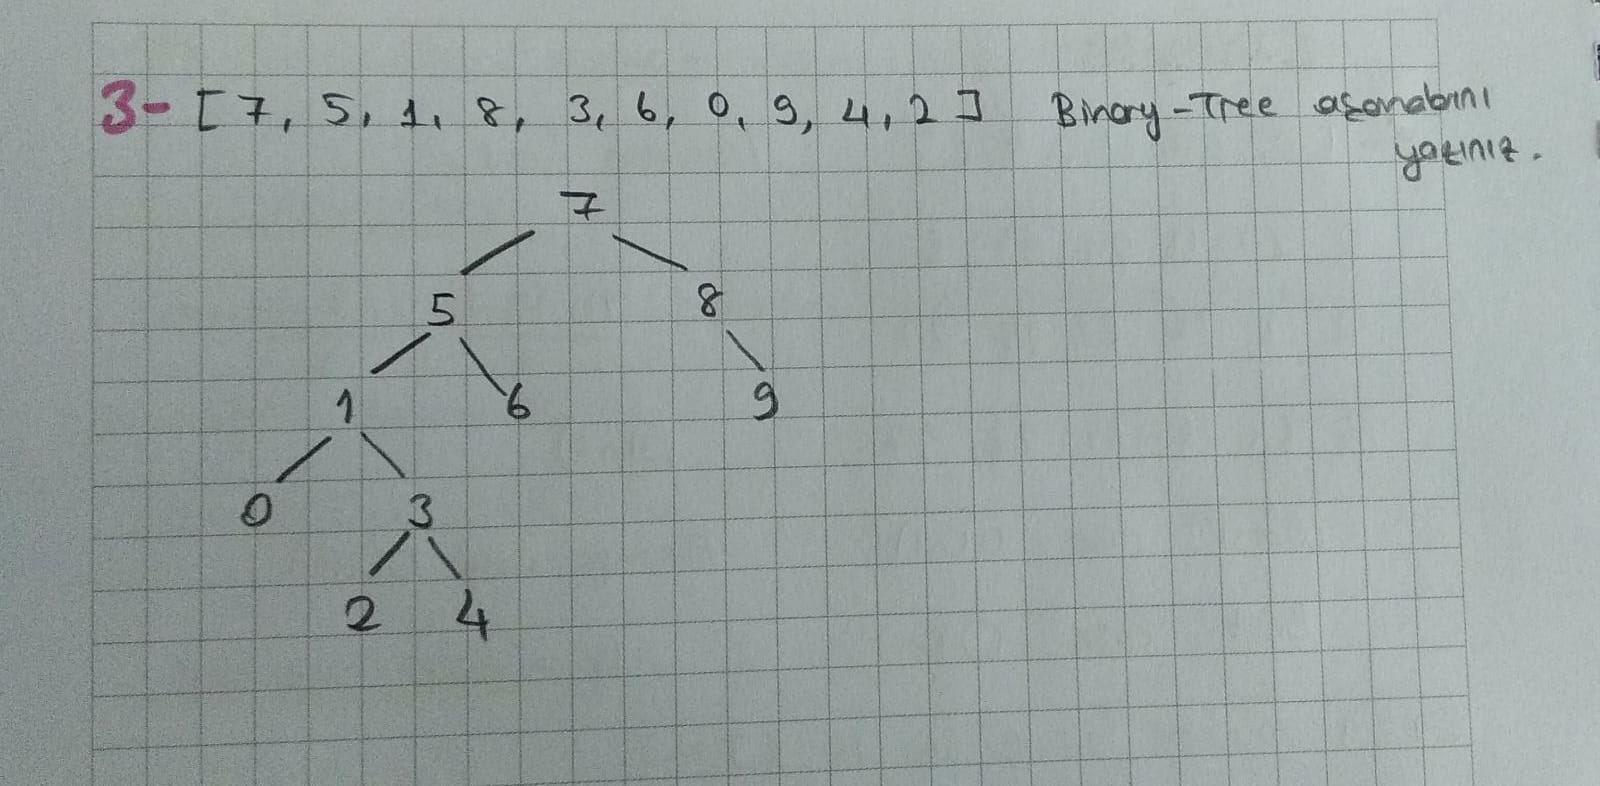 3- [7, 5, 1, 8, 3, 6, 0, 9, 4, 2] Binary-Tree aşamalarını
yazınız.
7
5 8
1 6 9
0 3
2 4